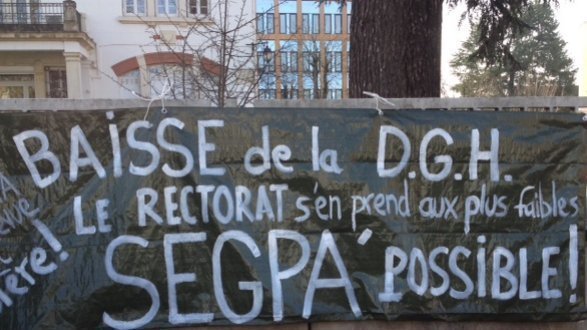 BAISSE de la D.G.H.
LE RECTORAT s'en prend aux plus faibles
SEGPA' POSSIBLE!